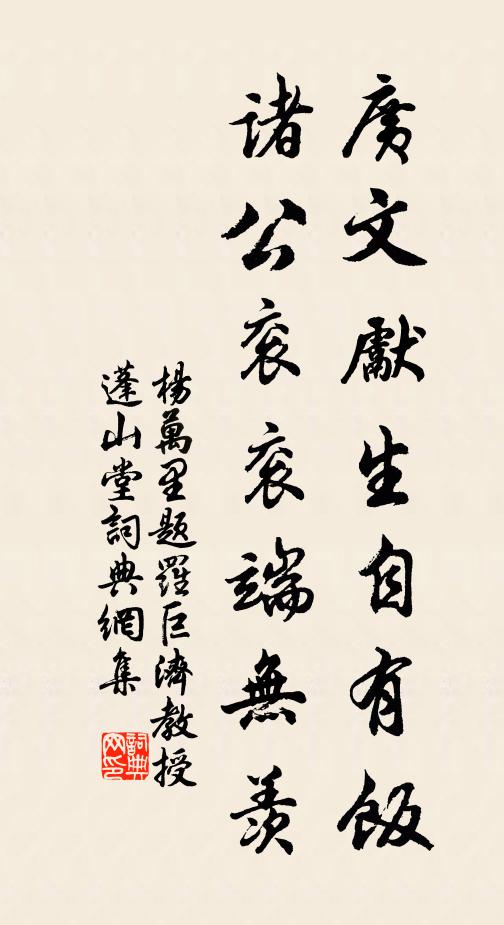 廣文獻生自有飯
諸公衮衮端無羨
楊萬里題羅巨濟教授
蓬山堂詞典網集
詞典网印